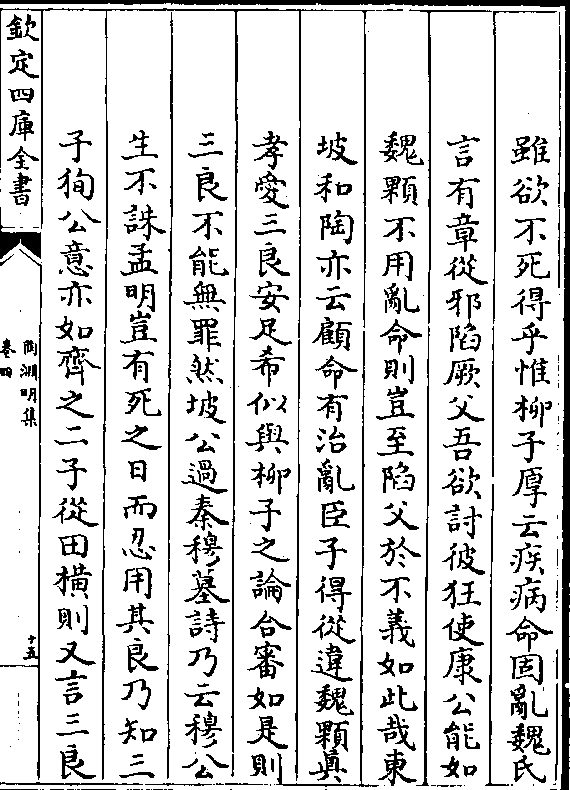 雖欲不死得乎惟柳子厚云疾病命固亂魏氏
言有章從邪陷厥父吾欲討彼狂使康公能如
魏顆不用亂命則豈至陷父於不義如此哉東
坡和陶亦云顧命有治亂臣子得從違魏顆真
孝愛三良安足希似與柳子之論合審如是則
三良不能無罪然坡公過秦穆墓詩乃云穆公
生不誅孟明豈有死之日而忍用其良乃知三
子狥公意亦如齊之二子從田橫則又言三良
欽定四庫全書
陶淵明集
卷四
十五